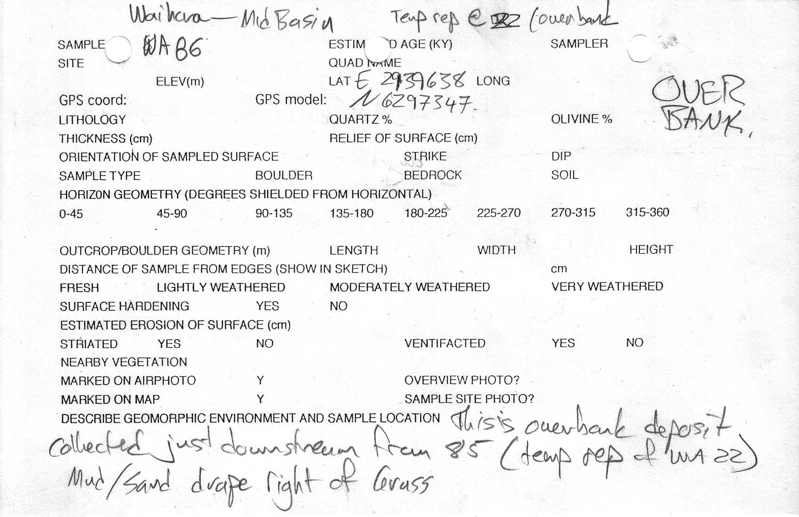 Waihora - Mid Basin Temp rep @ 22 / overbank
SAMPLE WA86 ESTIM D AGE (KY) SAMPLER
SITE QUAD NAME
ELEV(m) LAT E 2939638 LONG
GPS coord: GPS model: N 6297347. OVER BANK.
LITHOLOGY QUARTZ % OLIVINE %
THICKNESS (cm) RELIEF OF SURFACE (cm)
ORIENTATION OF SAMPLED SURFACE STRIKE DIP
SAMPLE TYPE BOULDER BEDROCK SOIL
HORIZON GEOMETRY (DEGREES SHIELDED FROM HORIZONTAL)
0-45 45-90 90-135 135-180 180-225 225-270 270-315 315-360
OUTCROP/BOULDER GEOMETRY (m) LENGTH WIDTH HEIGHT
DISTANCE OF SAMPLE FROM EDGES (SHOW IN SKETCH) cm
FRESH LIGHTLY WEATHERED MODERATELY WEATHERED VERY WEATHERED
SURFACE HARDENING YES NO
ESTIMATED EROSION OF SURFACE (cm)
STRIATED YES NO VENTIFACTED YES NO
NEARBY VEGETATION
MARKED ON AIRPHOTO Y OVERVIEW PHOTO?
MARKED ON MAP Y SAMPLE SITE PHOTO?
DESCRIBE GEOMORPHIC ENVIRONMENT AND SAMPLE LOCATION This is overbank deposit
collected just downstream from 85 (temp rep of WA 22)
Mud/Sand drape right of Grass